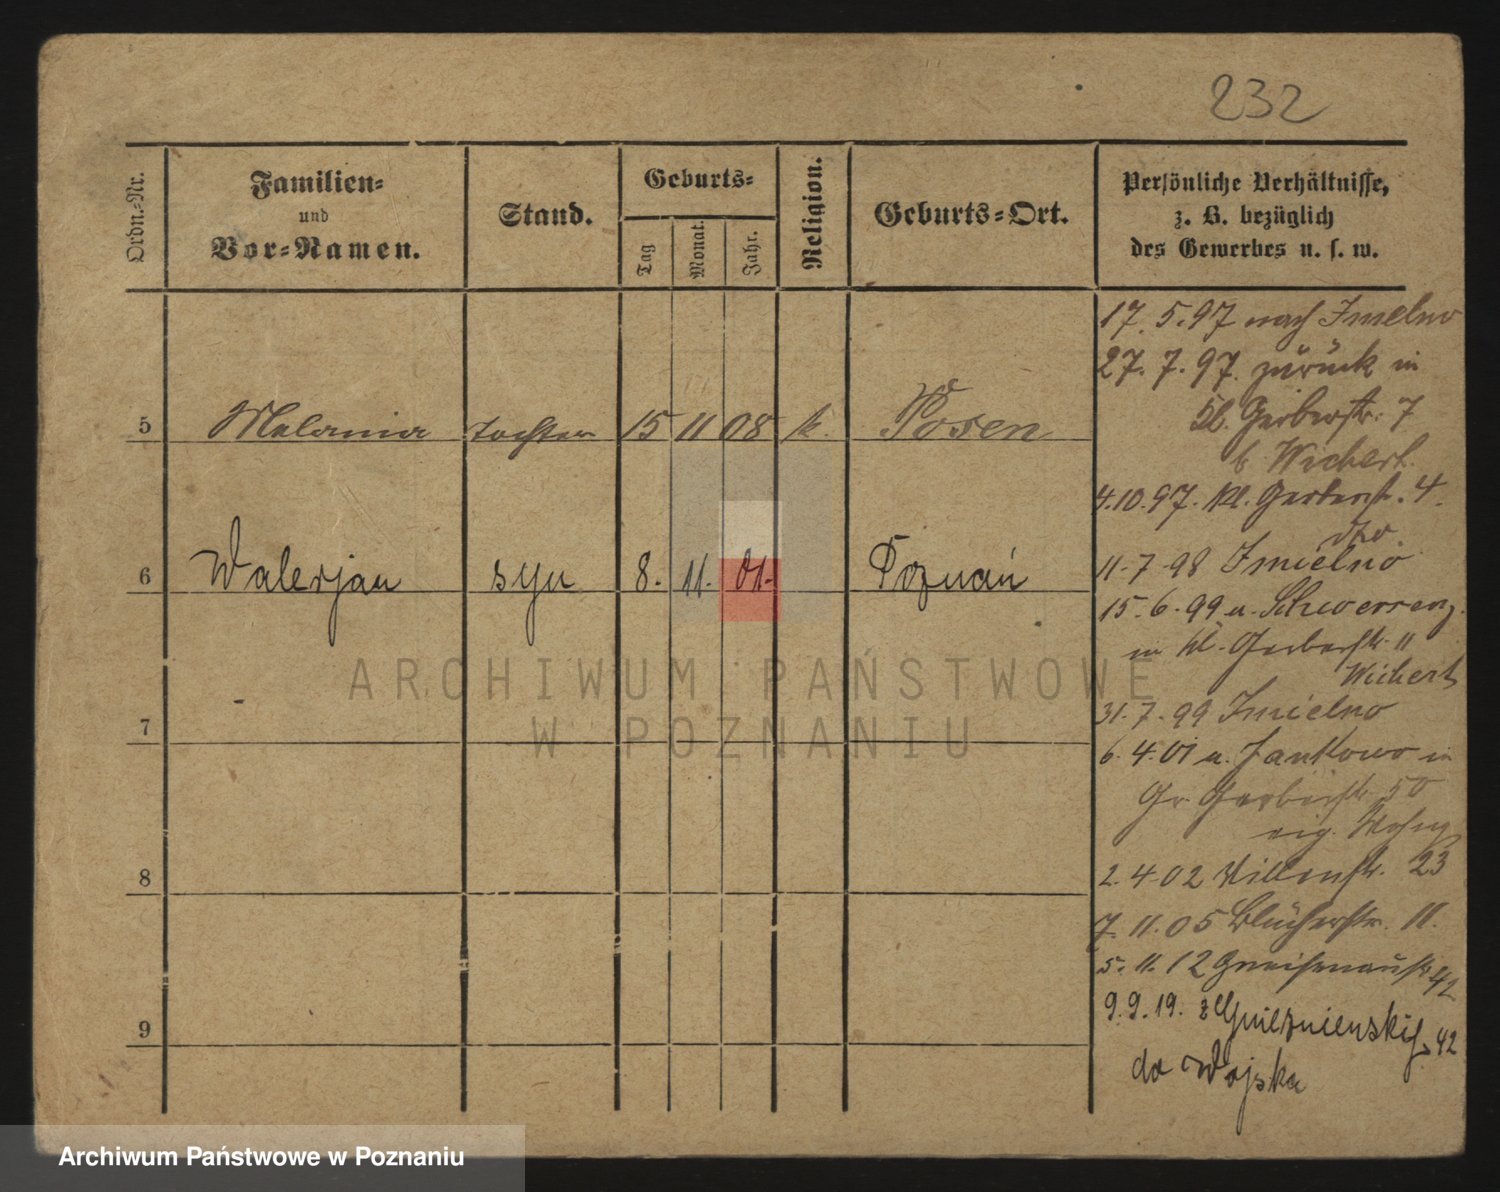 232
Ordn.-Nr.
Familien-
und
Vor-Namen.
Stand.
Geburts-
Tag
Monat.
Jahr.
Religion.
Geburts-Ort.
Persönliche Verhältnisse,
z. B. bezüglich
des Gewerbes u. s. w.
5 Melania tochter 15 11 08 k. Posen
6 Walerjan syn 8. 11. 01. Poznań
7
8
9
17. 5. 97 nach Imielno
27. 7. 97. zurück in
Kl. Gerberstr. 7
b Wichert.
4.10.97. Kl. Gerberstr. 4.
11. 7. 98 Imielno
15. 6. 99 u. Schwersenz
in Kl. Gerberstr. 11
Wichert
31. 7. 99 Imielno
6. 4. 01 u. Jankowo in
Gr. Gerberstr. 50
eig. Wohng
2. 4. 02 23
7. 11. 05 Blücherstr. 11.
5. 11. 12 Gneisenaustr 42
9. 9. 19. z Gnieznienskiej 42
do Wojska
ARCHIWUM PAŃSTWOWE
W POZNANIU
Archiwum Państwowe w Poznaniu